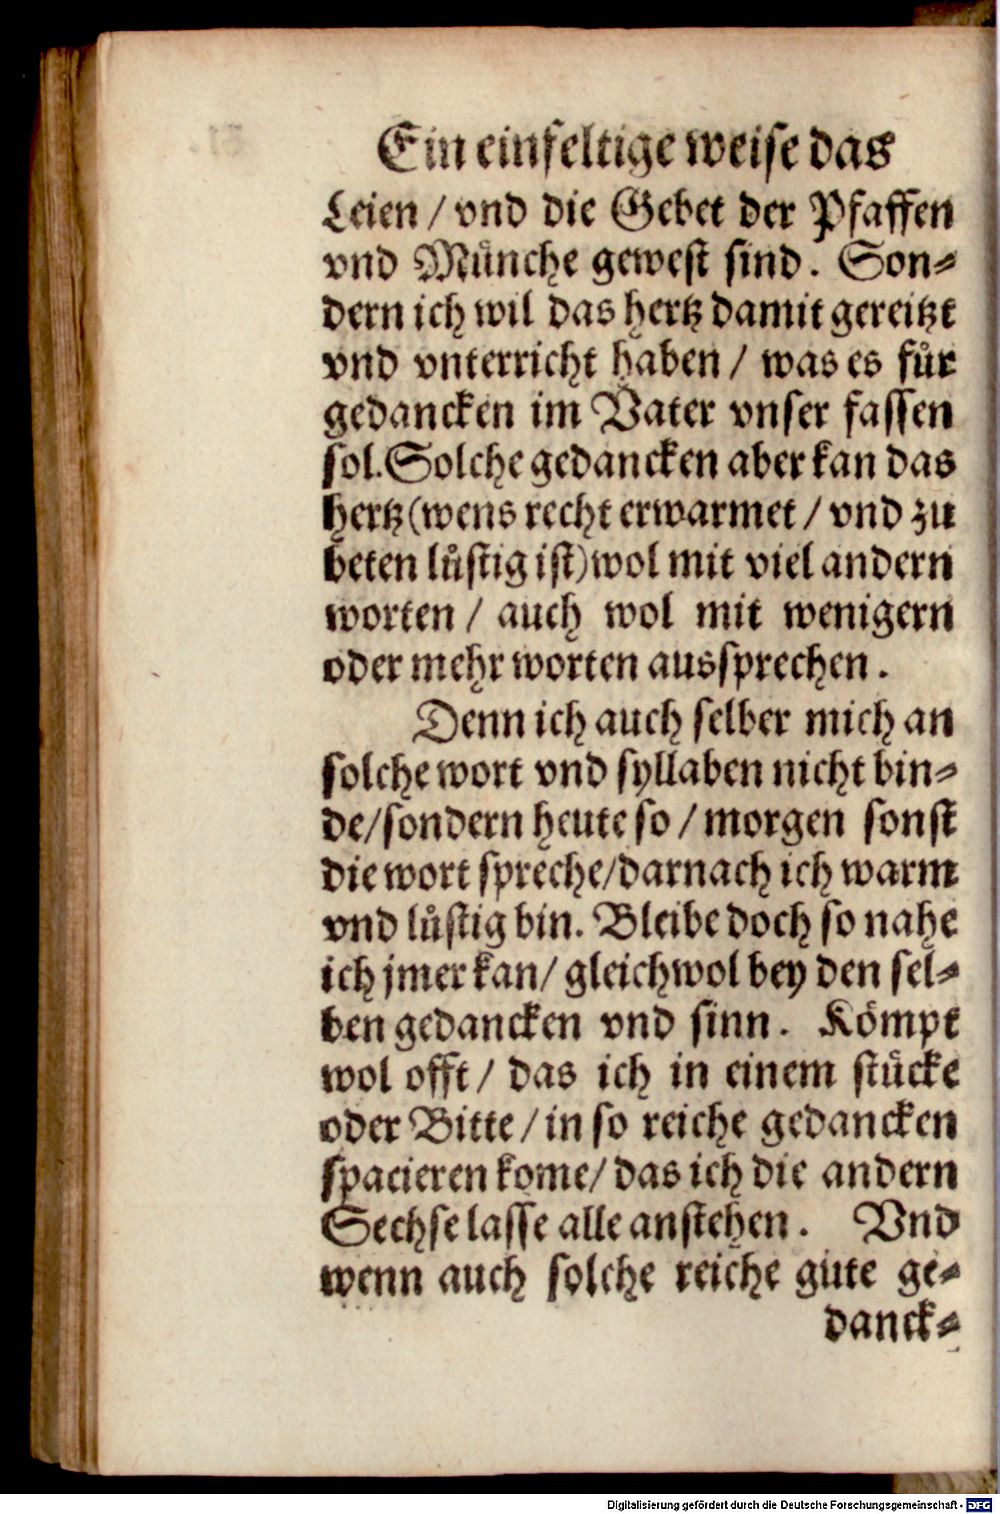 Ein einfeltige weise das
Leien / vnd die Gebet der Pfaffen
vnd Muͤnche gewest sind. Son⸗
dern ich wil das hertz damit gereitzt
vnd vnterricht haben / was es fuͤr
gedancken im Vater vnser fassen
sol. Solche gedancken aber kan das
hertz (wens recht erwarmet / vnd zu
beten luͤstig ist) wol mit viel andern
worten / auch wol mit wenigern
oder mehr worten aussprechen.
Denn ich auch selber mich an
solche wort vnd syllaben nicht bin⸗
de / sondern heute so / morgen sonst
die wort spreche / darnach ich warm
vnd luͤstig bin. Bleibe doch so nahe
ich jmer kan / gleichwol bey den sel⸗
ben gedancken vnd sinn. Koͤmpt
wol offt / das ich in einem stuͤcke
oder Bitte / in so reiche gedancken
spacieren kome / das ich die andern
Sechse lasse alle anstehen. Vnd
wenn auch solche reiche gute ge⸗
danck⸗
Digitalisierung gefördert durch die Deutsche Forschungsgemeinschaft - DFG